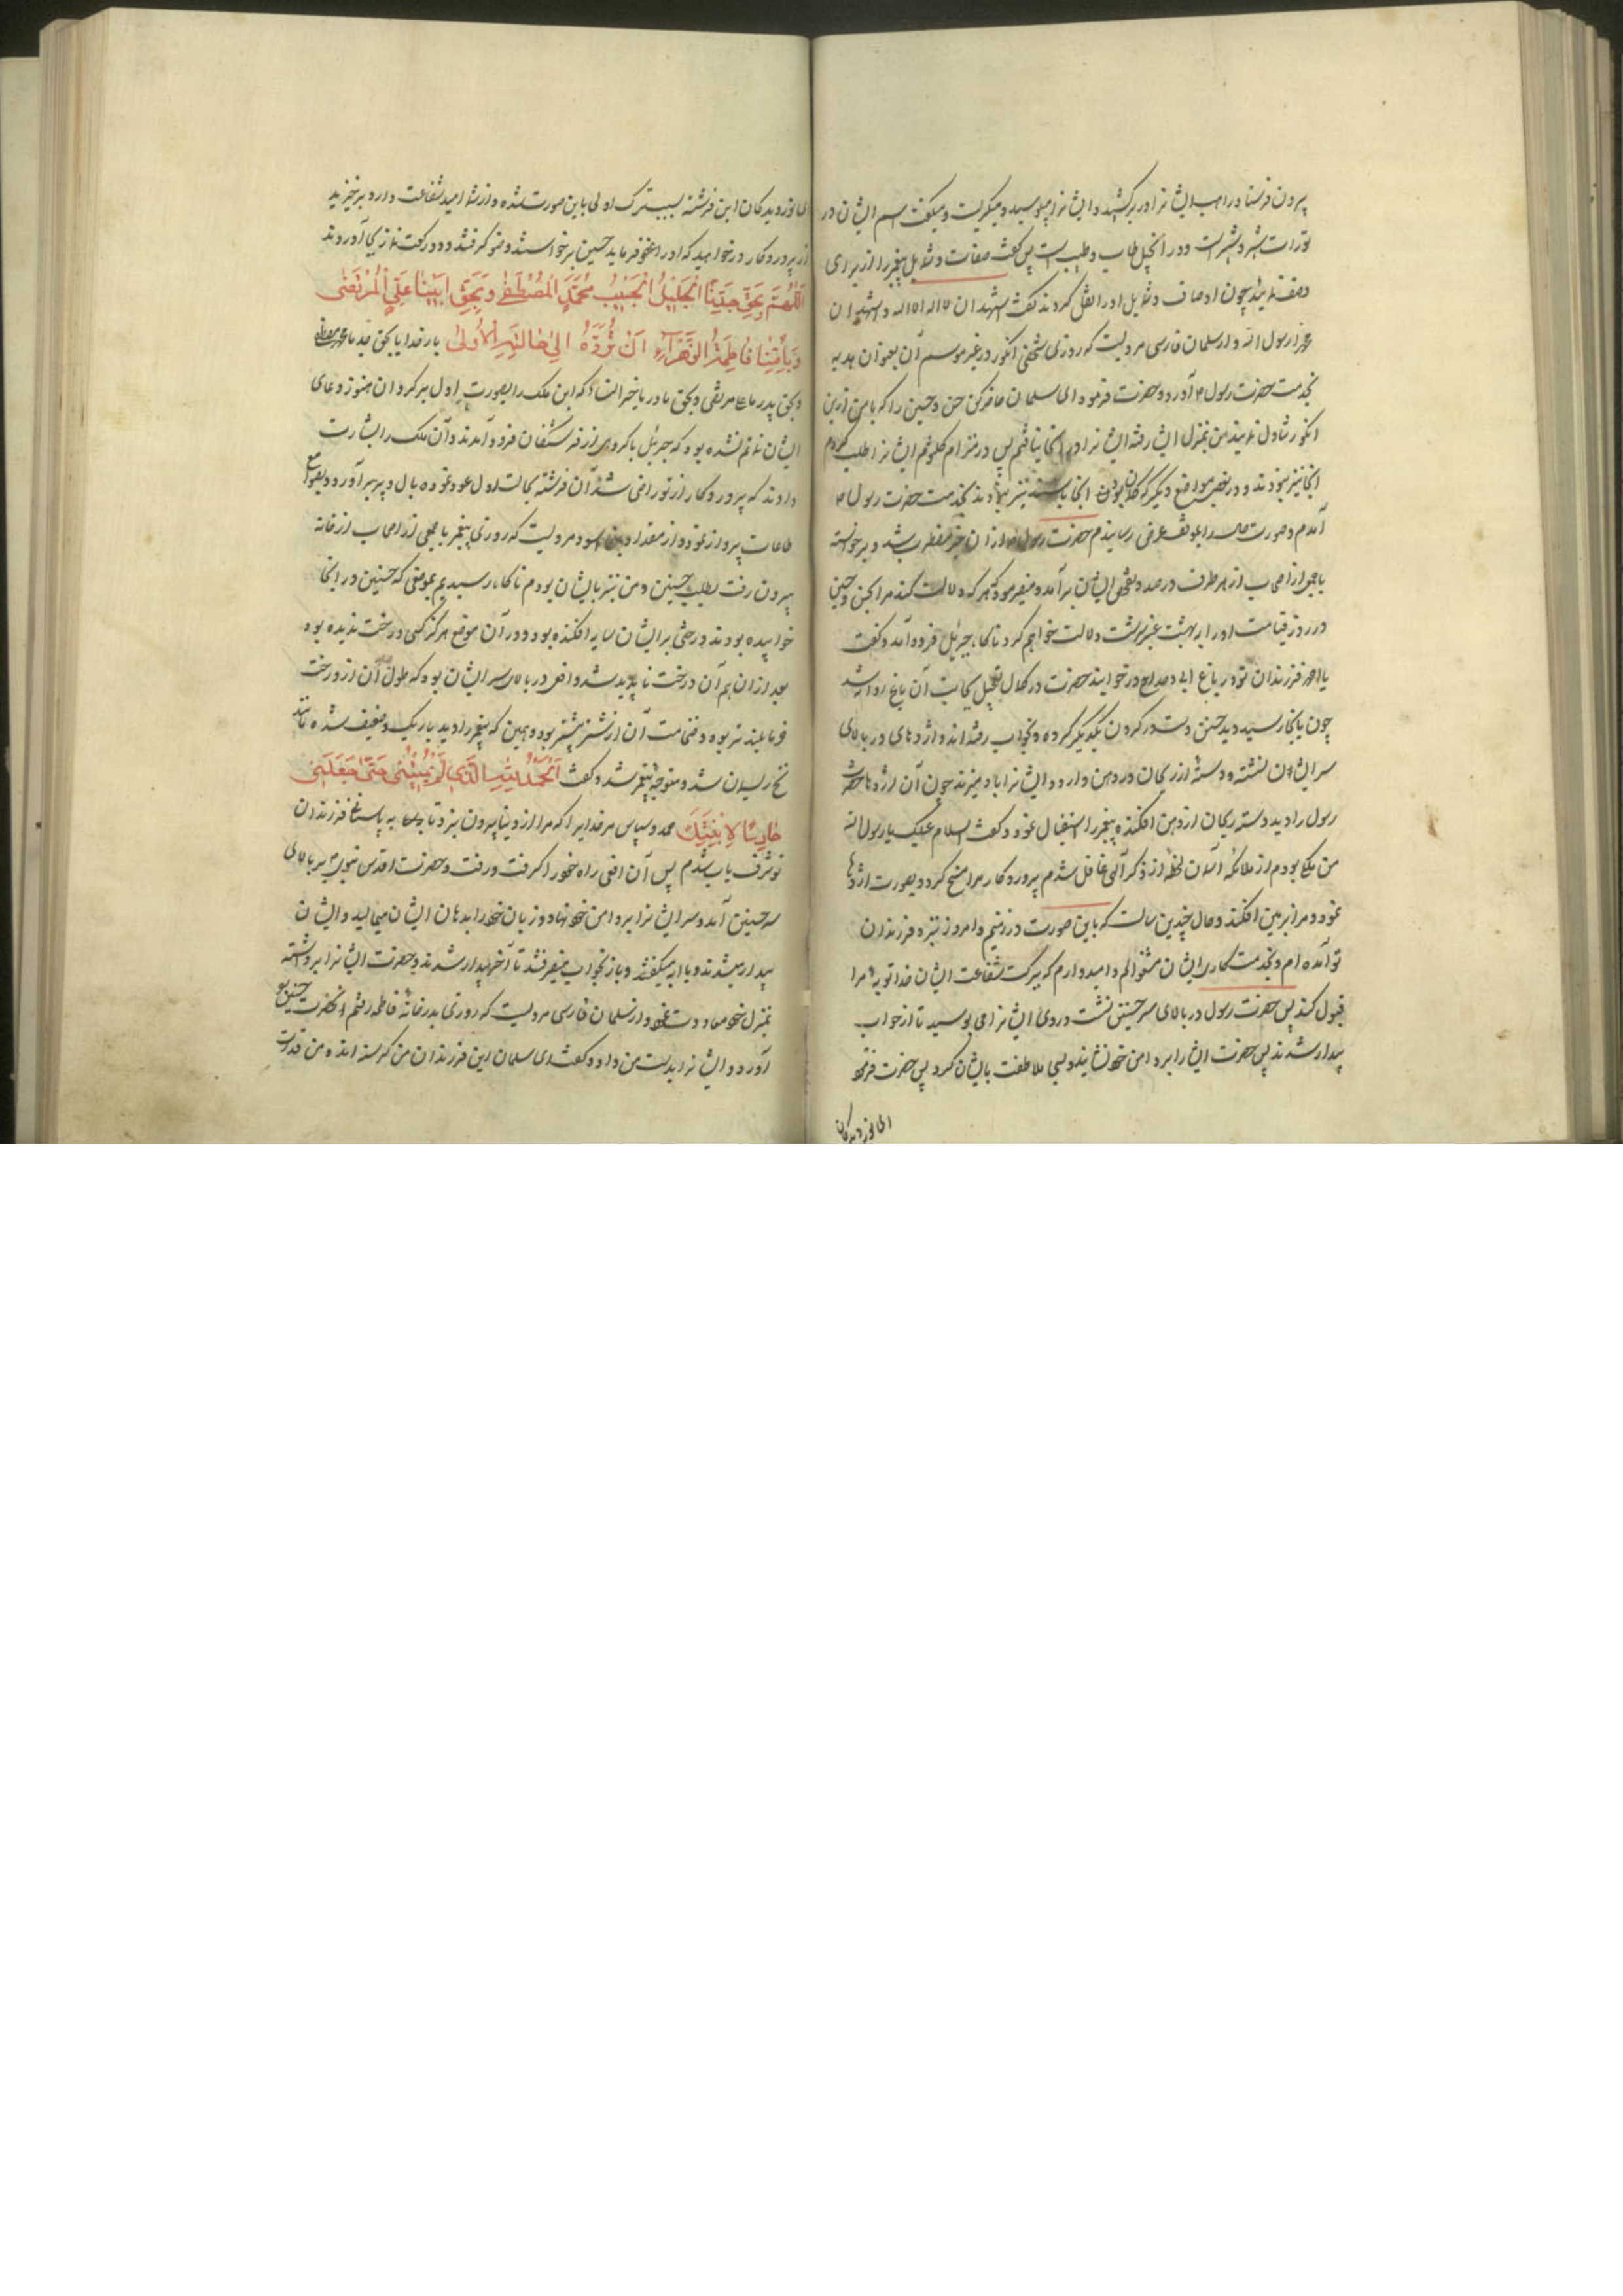 بیرون فرستاد راهب ایشانرا در بر کشید و ایشانرا میبوسید و میگریست و میگفت اسم ایشان در
توراة شبر و شبیر است و در انجیل طاب وطیب است پس گفت صفات و شمایل پیغمبر را از برای
وصف نمائید چون اوصاف و شمایل او را نقل کردند گفت اشهد ان لا اله الا الله و اشهد ان
محمدا رسول الله و از سلمان فارسی مرویست که روزی شخصی انگور در غیر موسم آن بعنوان هدیه
بخدمت حضرت رسول ص آورد و حضرت فرمود ای سلمان حاضر کن حسن و حسین را که با من ازین
انگور تناول نمایند من بمنزل ایشان رفته ایشانرا در انجا نیافتم پس در منزل ام کلثوم ایشانرا طلب کردم
انجا نیز نبودند و در بعضی مواضع دیگر که گمان بودن انجا باشند نیز نبودند بخدمت حضرت رسول ص
آمدم و صورت حال را بموقف عرض رسانیدم حضرت رسول ص از ان خبر مضطرب شد و برخواسته
با جمعی از اصحاب از هر طرف در صدد تفحص ایشان برآمد و میفرمود که هر که دلالت کند مرا بحسن و حسین
در روز قیامت او را به بهشت عنبر سرشت دلالت خواهم کرد ناگاه جبرئیل فرود آمد و گفت
یا احمد فرزندان تو در باغ ابی دحداح در خوابند حضرت در کمال تعجیل بجانب آن باغ روانه شد
چون بانجا رسید دید حسنین دست در گردن یکدیگر کرده و بخواب رفته اند و اژدهای در بالای
سر ایشان نشسته و دسته از ریحان در دهن دارد و ایشانرا باد میزند چون آن اژدها حضرت
رسول را دید دسته ریحان از دهن افکنده پیغمبر را استقبال نمود و گفت السلام علیک یا رسول الله
من ملکی بودم از ملائکه آسمان لحظه از ذکر الهی غافل شدم پروردگار مرا مسخ کرد و بصورت اژدها
نمود و مرا بر زمین افکند و حال چندین سالست که باین صورت در زمینم و امروز نیز نزد فرزندان
تو آمده ام و بخدمتکاری ایشان مشغولم و امیدوارم که ببرکت شفاعت ایشان خدا توبه مرا
قبول کند پس حضرت رسول در بالای سر حسنین نشست و روی ایشانرا می بوسید تا از خواب
بیدار شدند پس حضرت ایشان را بر دامن خود نشانید و بسی ملاطفت بایشان کرد پس حضرت فرمود
ای نور دیدگان
ای نور دیدگان این فرشته بسبب ترک اولی باین صورت شده و از شما امید شفاعت دارد برخیزید
از پروردگار درخواهید که او را عفو فرماید حسنین برخواستند وضو گرفتند و دو رکعت نماز بجا آوردند
اللهم بحق جدنا الجلیل الحبیب محمد المصطفی و بحق ابینا علی المرتضی
و بامنا فاطمة الزهراء ان ترده الی حالته الاولی بار خدایا بحق جد ما محمد مصطفی
و بحق پدر ما علی مرتضی و بحق مادر ما خیر النساء که این ملک را بصورت اول برگردان هنوز دعای
ایشان تمام نشده بود که جبرئیل با گروهی از فرشتگان فرود آمدند و آن ملک را بشارت
دادند که پروردگار از تو راضی شد آن فرشته بحالت اول عود نموده بال و پر برآورد و بصوامع
طاعات پرواز نمود و از مقداد بن اسود مرویست که روزی پیغمبر با جمعی از اصحاب از خانه
بیرون رفت بطلب حسنین و من نیز با ایشان بودم ناگاه رسیدیم بموضعی که حسنین در انجا
خوابیده بودند و درختی بر ایشان سایه افکنده بود و در آن موضع هرگز کسی درخت ندیده بود
بعد از ان هم آن درخت ناپدید شد و افعی در بالای سر ایشان بود که طول آن از درخت
خرما بلندتر بود و ضخامت آن از شتر بیشتر بود و همین که پیغمبر را دید باریک و ضعیف شده مانند
نخ ریسمان شد و متوجه پیغمبر شد و گفت الحمد لله الذی لم یمیتنی حتی جعلنی
حارسا لابنیک حمد و سپاس مر خدایرا که مرا از دنیا بیرون نبرد تا به پاسبانی فرزندان
تو شرف یاب شدم پس آن افعی راه خود را گرفت و رفت و حضرت اقدس نبوی بر بالای
سر حسنین آمد و سر ایشانرا بر دامن خود نهاد و زبان خود را بدهان ایشان میمالید و ایشان
بیدار میشدند و یا ابه میگفتند و باز بخواب میرفتند تا آخر بیدار شدند و حضرت ایشانرا برداشته
بمنزل خود معاودت نمود و از سلمان فارسی مرویست که روزی بدر خانه فاطمه رفتم انحضرت حسنین
آورد و ایشانرا بدست من داد و گفت ای سلمان این فرزندان من گرسنه اند و من قدرت